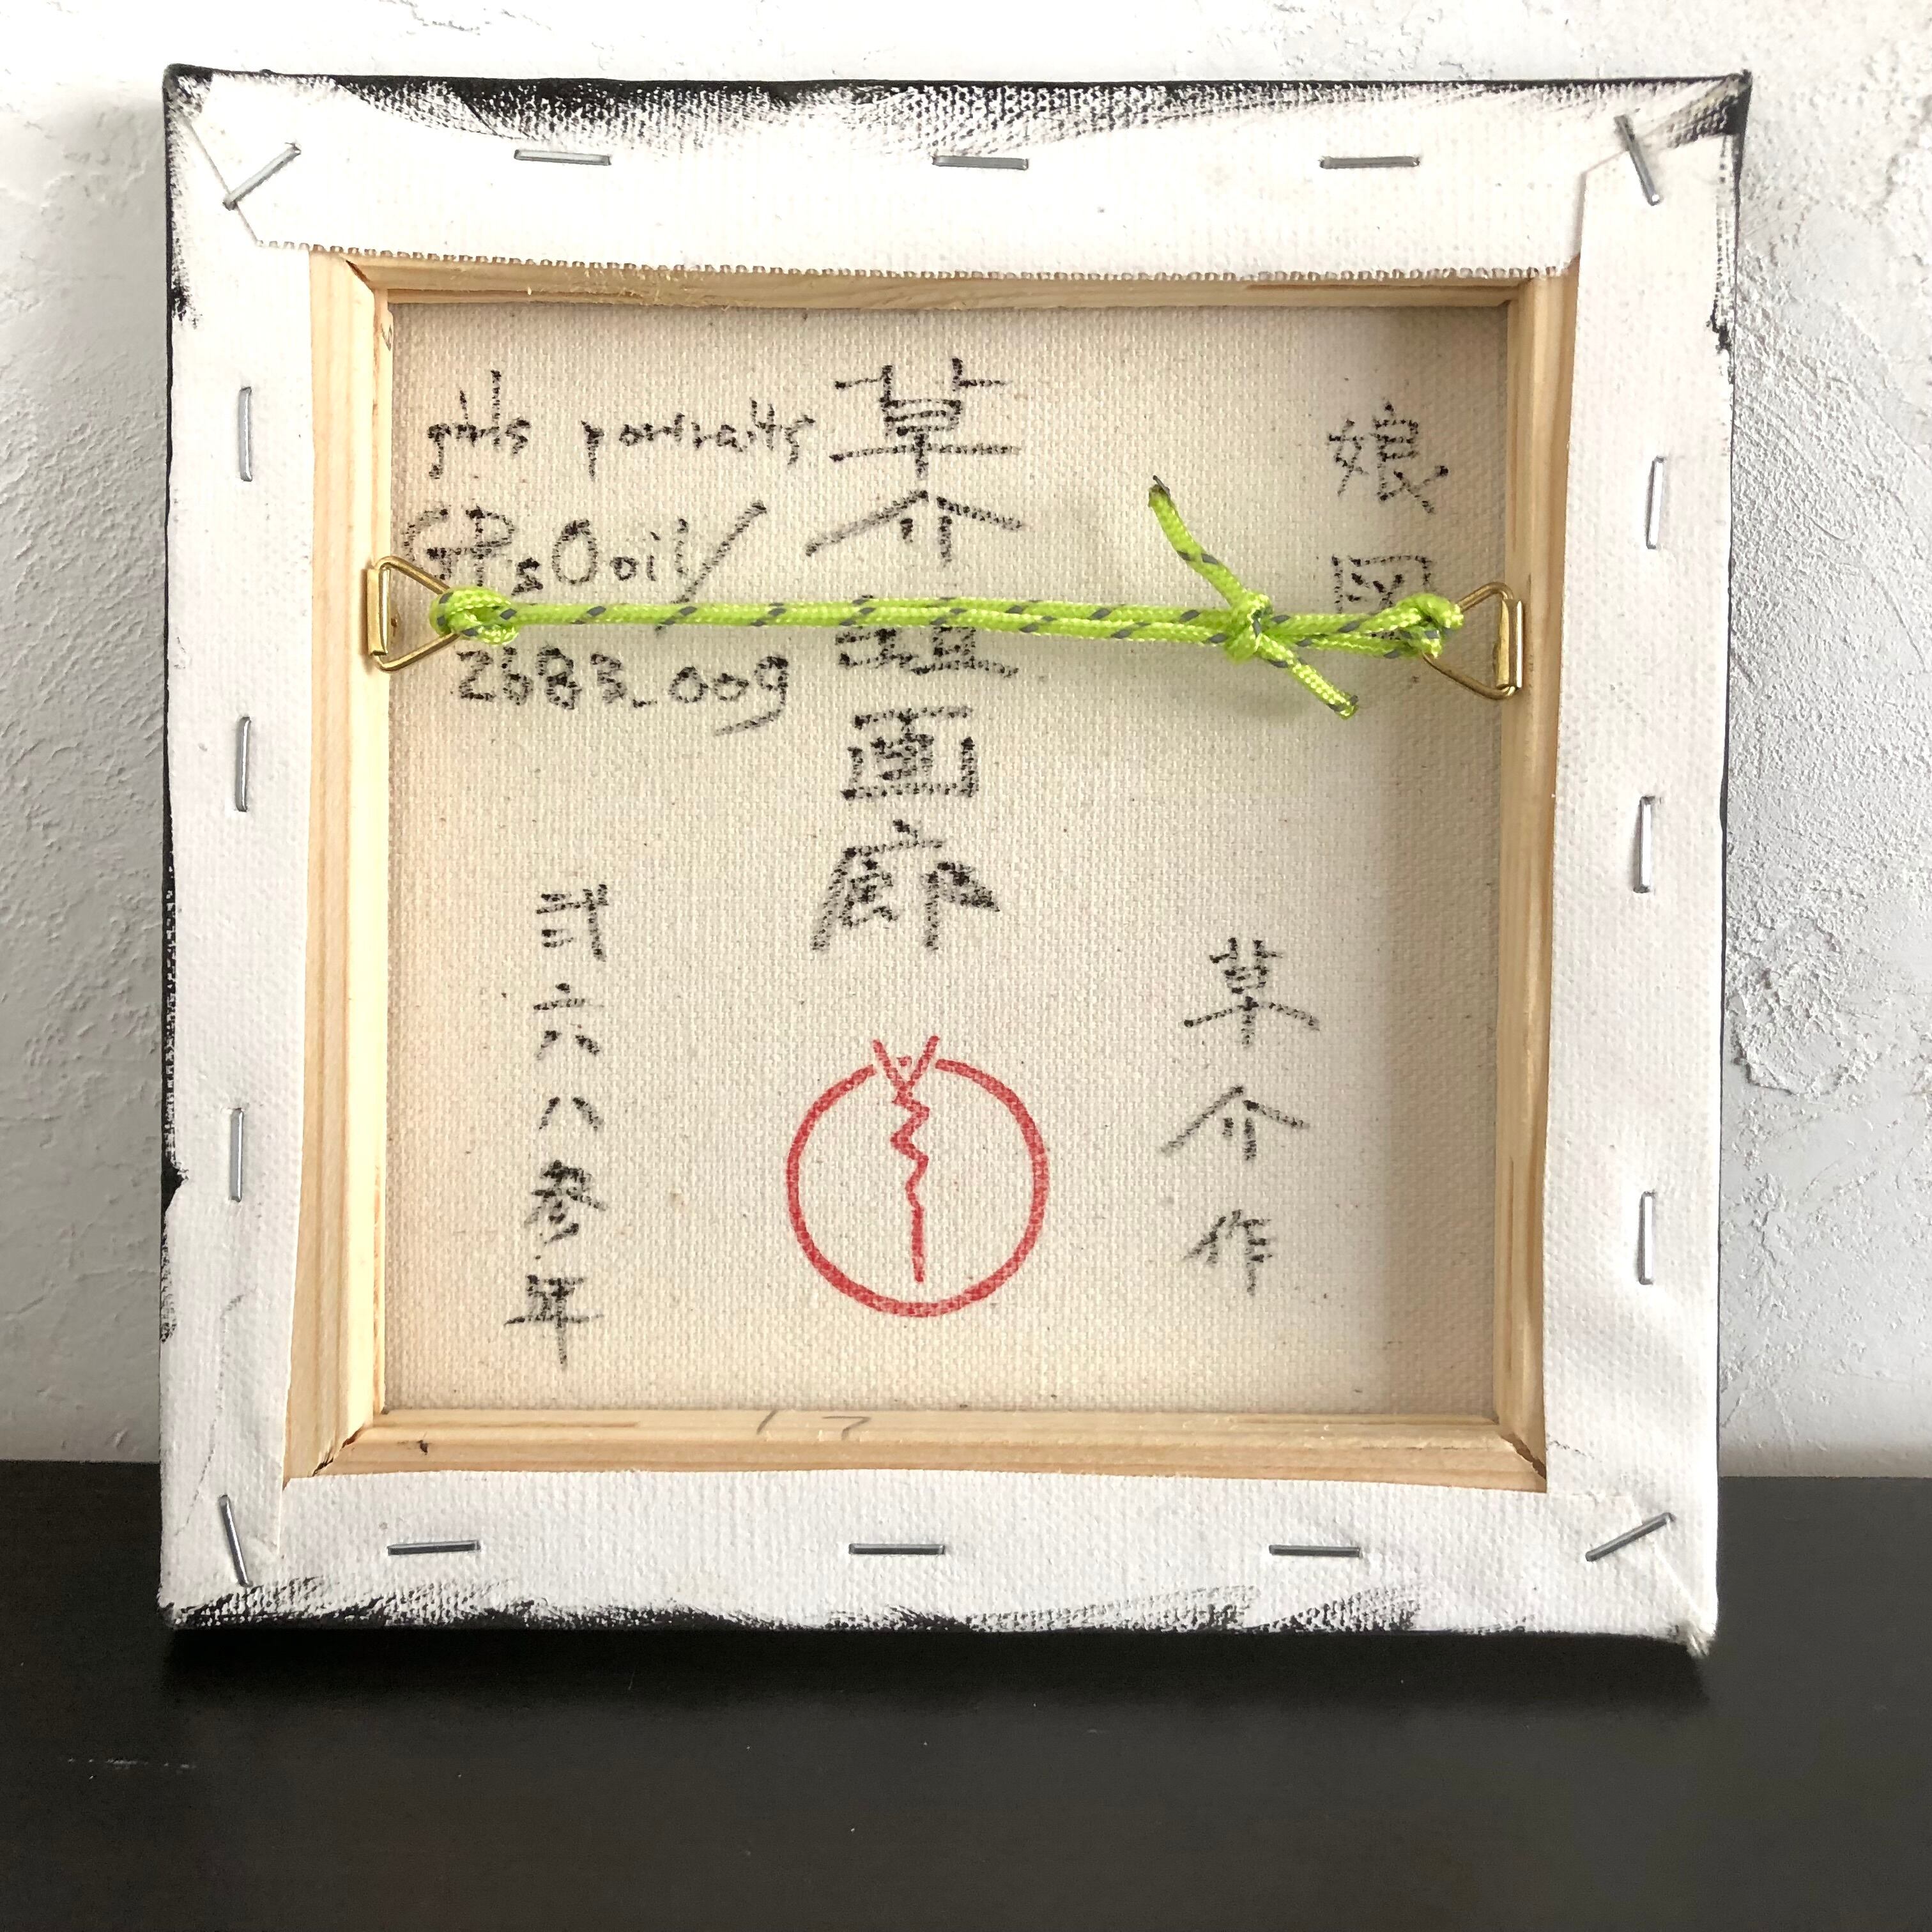 娘図
草介作
草介
画廊
girls portraits
GPsOoil/
2683_009
弐六八参年
17